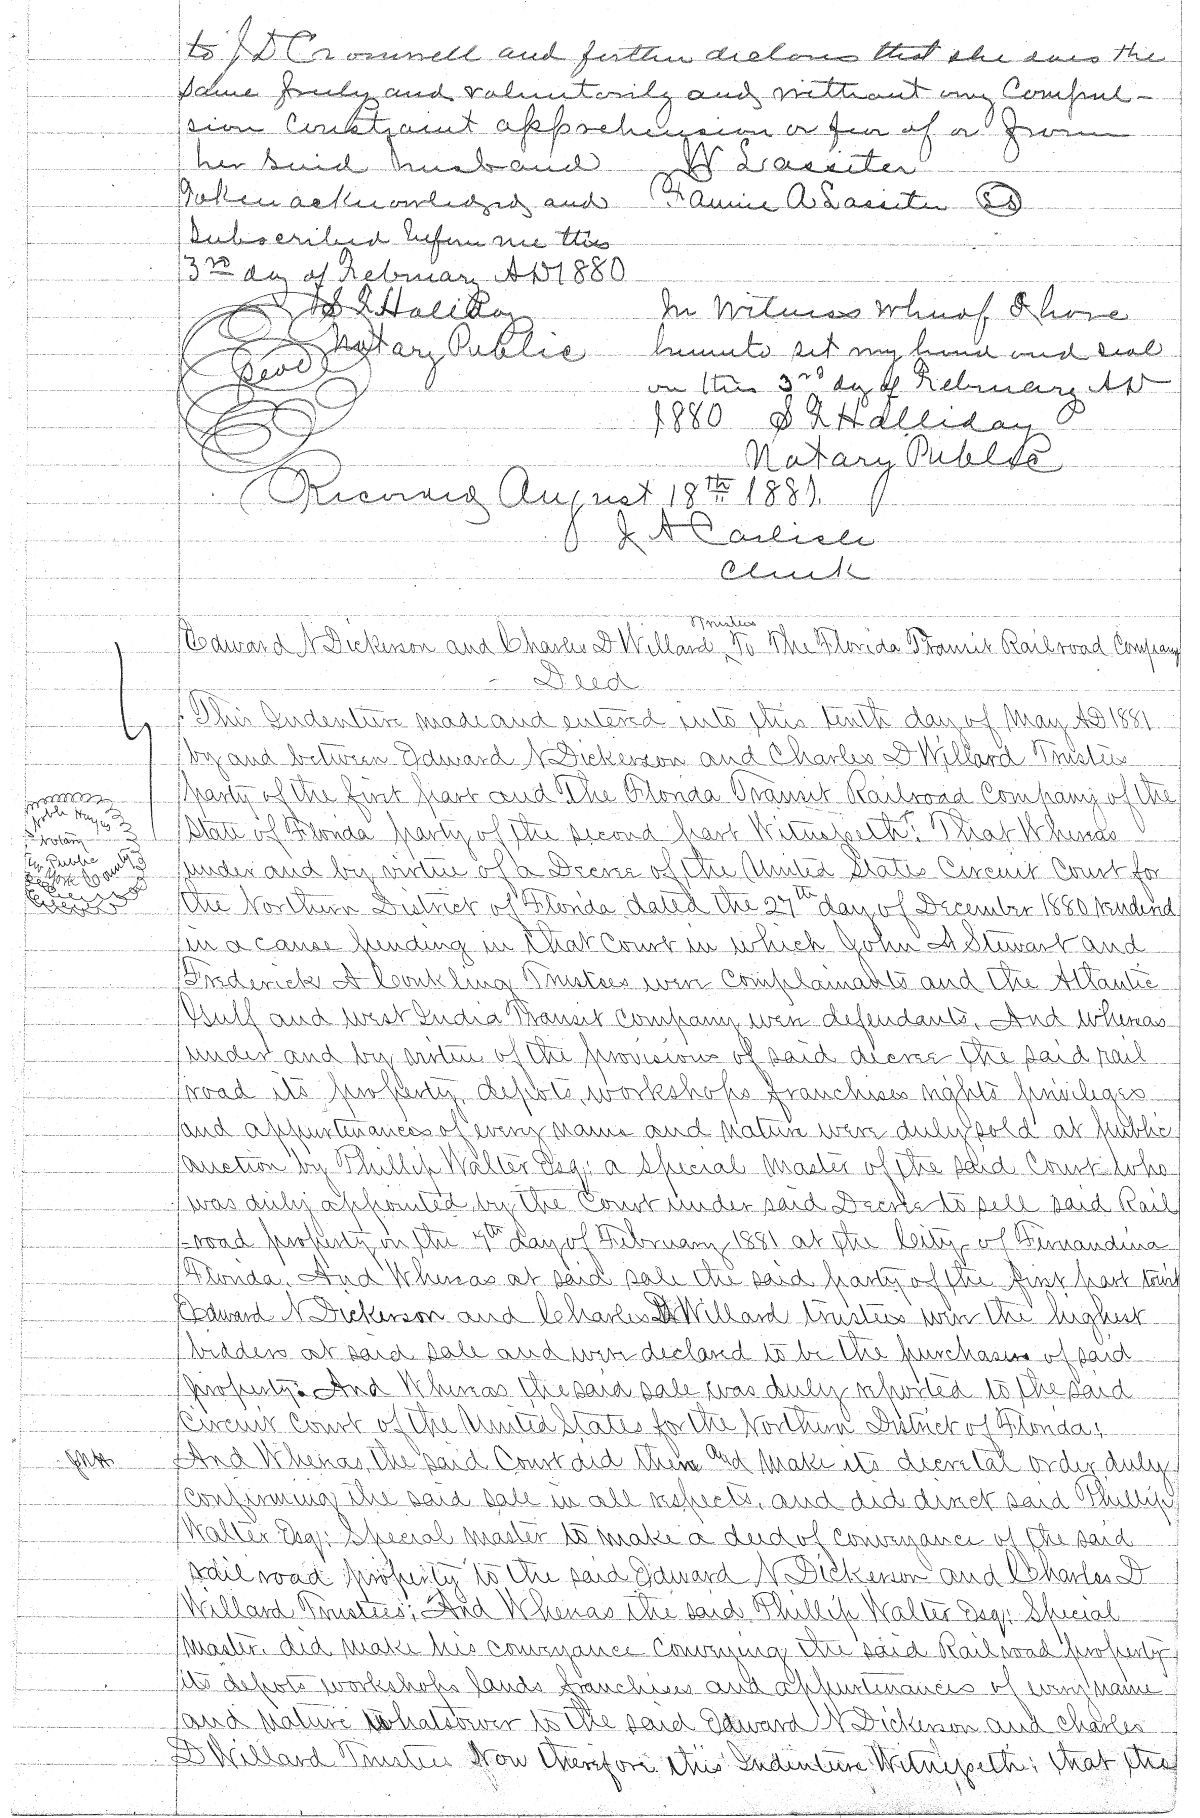 to J D Cromwell and further declares that she does the
same freely and voluntarily and without any Compul-
sion Constraint apprehension or fear of or from
her said husband W Lassiter
Taken acknowledged and Fannie A Lassiter
Subscribed before me this
3rd day of February AD 1880
S F Haliday In Witness Whereof I have
Notary Public hereunto set my hand and seal
Seal on this 3rd day of February AD
1880 S F Halliday
Notary Public
Recorded August 18th 1881.
J A Carlisle
Clerk
Trustees
Edward N Dickerson and Charles D Willard To The Florida Transit Railroad Company
- Deed
This Indenture made and entered into this tenth day of May AD 1881
by and between Edward N Dickerson and Charles D Willard Trustees
party of the first part and The Florida Transit Railroad Company of the
Noble Hayes
State of Florida party of the second part Witnesseth: That Whereas
Notary
Public
under and by virtue of a Decree of the United States Circuit Court for
York County
the Northern District of Florida dated the 27th day of December 1880 rendered
in a cause pending in that Court in which John A Stewart and
Frederick A Conkling Trustees were Complainants and the Atlantic
Gulf and West India Transit Company were defendants. And whereas
under and by virtue of the provisions of said decree the said rail
road its property, depots, workshops franchises rights privileges
and appurtenances of every name and nature were duly sold at public
auction by Phillip Walter Esq: a special master of the said Court who
was duly appointed by the Court under said Decree to sell said Rail
=road property on the 7th day of February 1881 at the City of Fernandina
Florida. And Whereas at said sale the said party of the first part
Edward N Dickerson and Charles D Willard trustees were the highest
bidders at said sale and were declared to be the purchasers of said
property. And Whereas the said sale was duly reported to the said
Circuit Court of the United States for the Northern District of Florida;
And Whereas, the said Court did then and make its decretal order duly
confirming the said sale in all respects, and did direct said Phillip
Walter Esq: Special master to make a deed of conveyance of the said
rail road property to the said Edward N Dickerson and Charles D
Willard Trustees; And Whereas the said Phillip Walter Esq: Special
master did make his conveyance Conveying the said Railroad property,
its depots workshops lands franchises and appurtenances of every name
and nature whatsoever to the said Edward N Dickerson and Charles
D Willard Trustees Now therefore this Indenture Witnesseth: that the